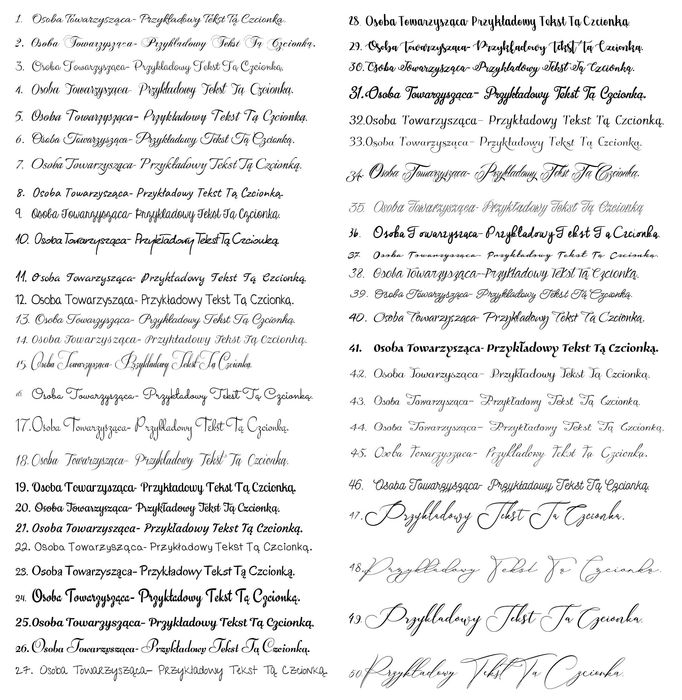 1. Osoba Towarzysząca- Przykładowy Tekst Tą Czcionką.
2. Osoba Towarzysząca- Przykładowy Tekst Tą Czcionką.
3. Osoba Towarzysząca- Przykładowy Tekst Tą Czcionką.
4. Osoba Towarzysząca- Przykładowy Tekst Tą Czcionką.
5. Osoba Towarzysząca- Przykładowy Tekst Tą Czcionką.
6. Osoba Towarzysząca- Przykładowy Tekst Tą Czcionką.
7. Osoba Towarzysząca- Przykładowy Tekst Tą Czcionką.
8. Osoba Towarzysząca- Przykładowy Tekst Tą Czcionką.
9. Osoba Towarzysząca- Przykładowy Tekst Tą Czcionką.
10. Osoba Towarzysząca- Przykładowy Tekst Tą Czcionką
11. Osoba Towarzysząca- Przykładowy Tekst Tą Czcionką.
12. Osoba Towarzysząca- Przykładowy Tekst Tą Czcionką.
13. Osoba Towarzysząca- Przykładowy Tekst Tą Czcionką.
14. Osoba Towarzysząca- Przykładowy Tekst Tą Czcionką.
15. Osoba Towarzysząca- Przykładowy Tekst Tą Czcionką.
16. Osoba Towarzysząca- Przykładowy Tekst Tą Czcionką.
17. Osoba Towarzysząca- Przykładowy Tekst Tą Czcionką.
18. Osoba Towarzysząca- Przykładowy Tekst Tą Czcionką.
19. Osoba Towarzysząca- Przykładowy Tekst Tą Czcionką.
20. Osoba Towarzysząca- Przykładowy Tekst Tą Czcionką.
21. Osoba Towarzysząca- Przykładowy Tekst Tą Czcionką.
22. Osoba Towarzysząca- Przykładowy Tekst Tą Czcionką.
23. Osoba Towarzysząca- Przykładowy Tekst Tą Czcionką.
24. Osoba Towarzysząca- Przykładowy Tekst Tą Czcionką.
25. Osoba Towarzysząca- Przykładowy Tekst Tą Czcionką.
26. Osoba Towarzysząca- Przykładowy Tekst Tą Czcionką.
27. Osoba Towarzysząca- Przykładowy Tekst Tą Czcionką.
28. Osoba Towarzysząca- Przykładowy Tekst Tą Czcionką.
29. Osoba Towarzysząca- Przykładowy Tekst Tą Czcionką.
30. Osoba Towarzysząca- Przykładowy Tekst Tą Czcionką.
31. Osoba Towarzysząca- Przykładowy Tekst Tą Czcionką.
32. Osoba Towarzysząca- Przykładowy Tekst Tą Czcionką.
33. Osoba Towarzysząca- Przykładowy Tekst Tą Czcionką.
34. Osoba Towarzysząca- Przykładowy Tekst Tą Czcionką.
35. Osoba Towarzysząca- Przykładowy Tekst Tą Czcionką
36. Osoba Towarzysząca- Przykładowy Tekst Tą Czcionką.
37. Osoba Towarzysząca- Przykładowy Tekst Tą Czcionką.
38. Osoba Towarzysząca- Przykładowy Tekst Tą Czcionką.
39. Osoba Towarzysząca- Przykładowy Tekst Tą Czcionką.
40. Osoba Towarzysząca- Przykładowy Tekst Tą Czcionką.
41. Osoba Towarzysząca- Przykładowy Tekst Tą Czcionką.
42. Osoba Towarzysząca- Przykładowy Tekst Tą Czcionką.
43. Osoba Towarzysząca- Przykładowy Tekst Tą Czcionką.
44. Osoba Towarzysząca- Przykładowy Tekst Tą Czcionką.
45. Osoba Towarzysząca- Przykładowy Tekst Tą Czcionką.
46. Osoba Towarzysząca- Przykładowy Tekst Tą Czcionką.
47. Przykladowy Tekst Ta Czcionka.
48. Przykladowy Tekst Tą Czcionka.
49. Przykladowy Tekst Ta Czcionka.
50. Przykladowy Tekst Ta Czcionka.